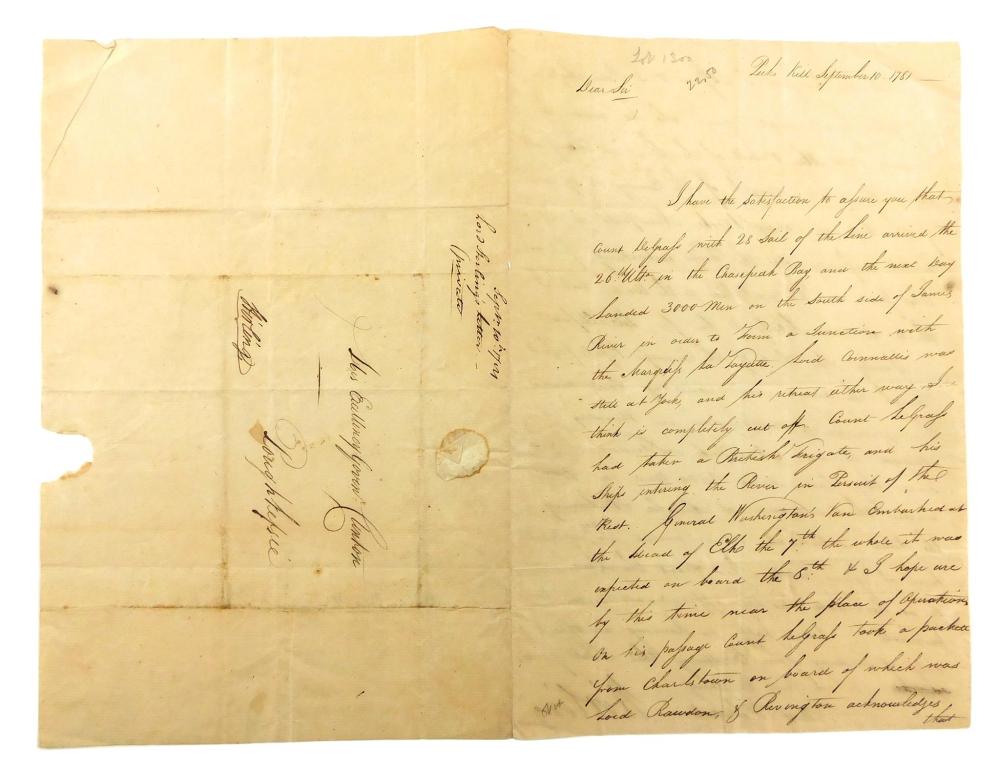 Lot 1300
22.50
Peeks Kill September 10. 1781 —
Dear Sir
I have the satisfaction to assure you that
Count DeGrass with 28 Sail of the Line arrived the
26th Ulto. in the Chasepeak Bay, and the next Day
Landed 3000 Men on the South side of James
River in order to Form a Junction with
the Marquiss La Fayette. Lord Cornwallis was
still at York, and his retreat either way I
think is completely cut off. Count LeGrass
had taken a British Frigate, and his
Ships entering the River in Persuit of the
Rest. General Washington's Van Embarked at
the Head of Elk the 7th. the whole it was
expected on board the 8th. & I hope are
by this time near the place of Operations
On his passage Count LeGrass took a packett
from Charlstown on board of which was
Lord Rawdon, & Rivington acknowledges
that
Septr. 10th. 1781
Lord Stirlings letter —
(private
His Excellency Govenr. Clinton
—
Poughkepsie
Stirling